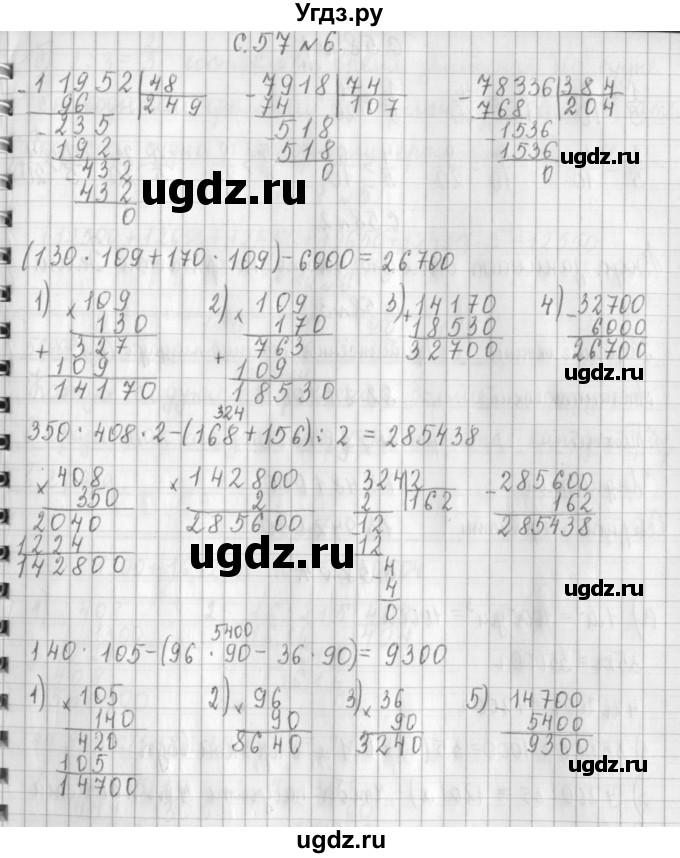 Угдз.ру
С.57 №6.
- 11952 | 48     - 7918 | 74     - 78336 | 384
96 | 249     74 | 107     768 | 204
- 235     - 518     - 1536
192     518     1536
- 432     0     0
432
0
ugdz.ru
ugdz.ru
(130 · 109 + 170 · 109) - 6000 = 26700
1) × 109     2) × 109     3) + 14170     4) - 32700
130     170     18530     6000
+ 327     + 763     32700     26700
109     109
14170     18530
ugdz.ru
324
350 · 408 · 2 - (168 + 156) : 2 = 285438
× 408     × 142800     324 | 2     - 285600
350     2     2 | 162     162
2040     285600     12     285438
1224     12
142800     - 4
4
0
ugdz.ru
ugdz.ru
5400
140 · 105 - (96 · 90 - 36 · 90) = 9300
1) × 105     2) × 96     3) × 36     5) - 14700
140     90     90     5400
420     8640     3240     9300
105
14700
ugdz.ru
ugdz.ru